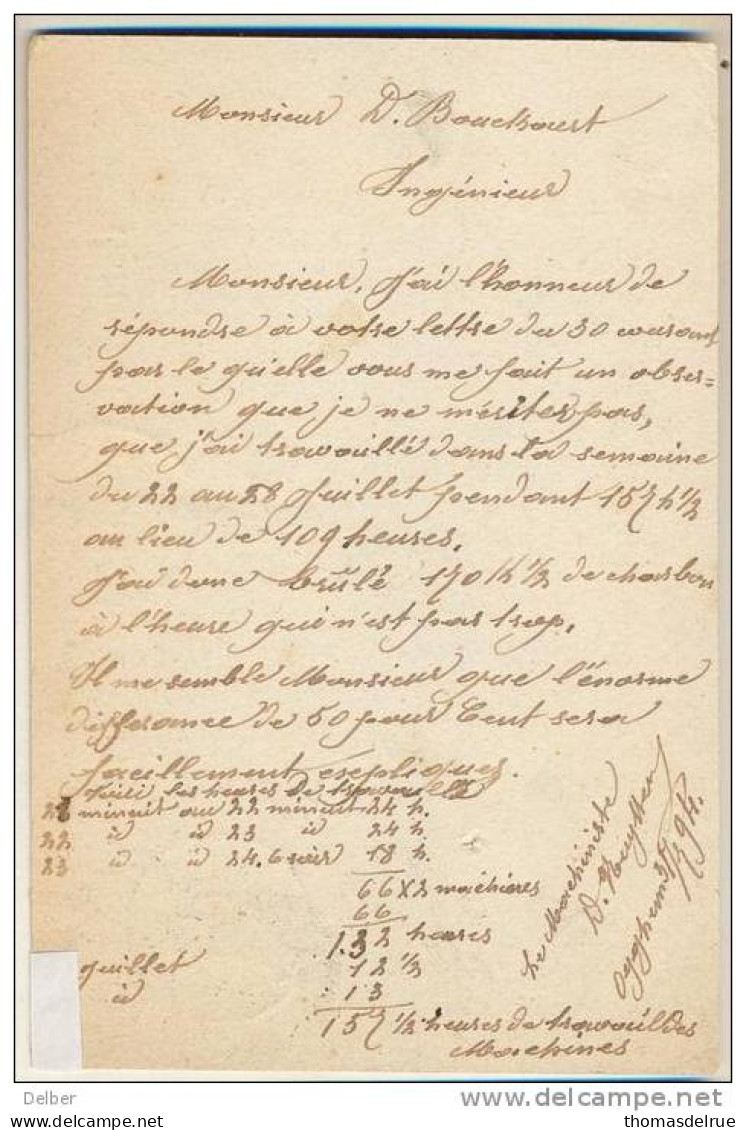 Monsieur D. Bouckaert
Ingénieur
Monsieur. J'ai l'honneur de
répondre à votre lettre du 30 courant
par le qu'elle vous me fait un obser=
vation que je ne mériter pas,
que j'ai travaillé dans la semaine
du 22 au 28 Juillet pendant 157 h 1/2
au lieu de 109 heures.
J'ai donc brûlé 170 K 1/2 de charbon
à l'heure qui n'est pas trop.
Il me semble Monsieur que l'énorme
differance de 50 pour Cent sera
facillement expliquez.
Voici les heures de travaille
minuit au 22 minuit 24 h.
22 à à 23 à 24 h.
23 à à 24. 6 soir 18 h.
66 x 2 machines
66
132 heures
guillet 12 1/2
à 13
157 1/2 heures de travail des
Machines
Le Machiniste
D.
94.
Delber
©delcampe.net
thomasdelrue